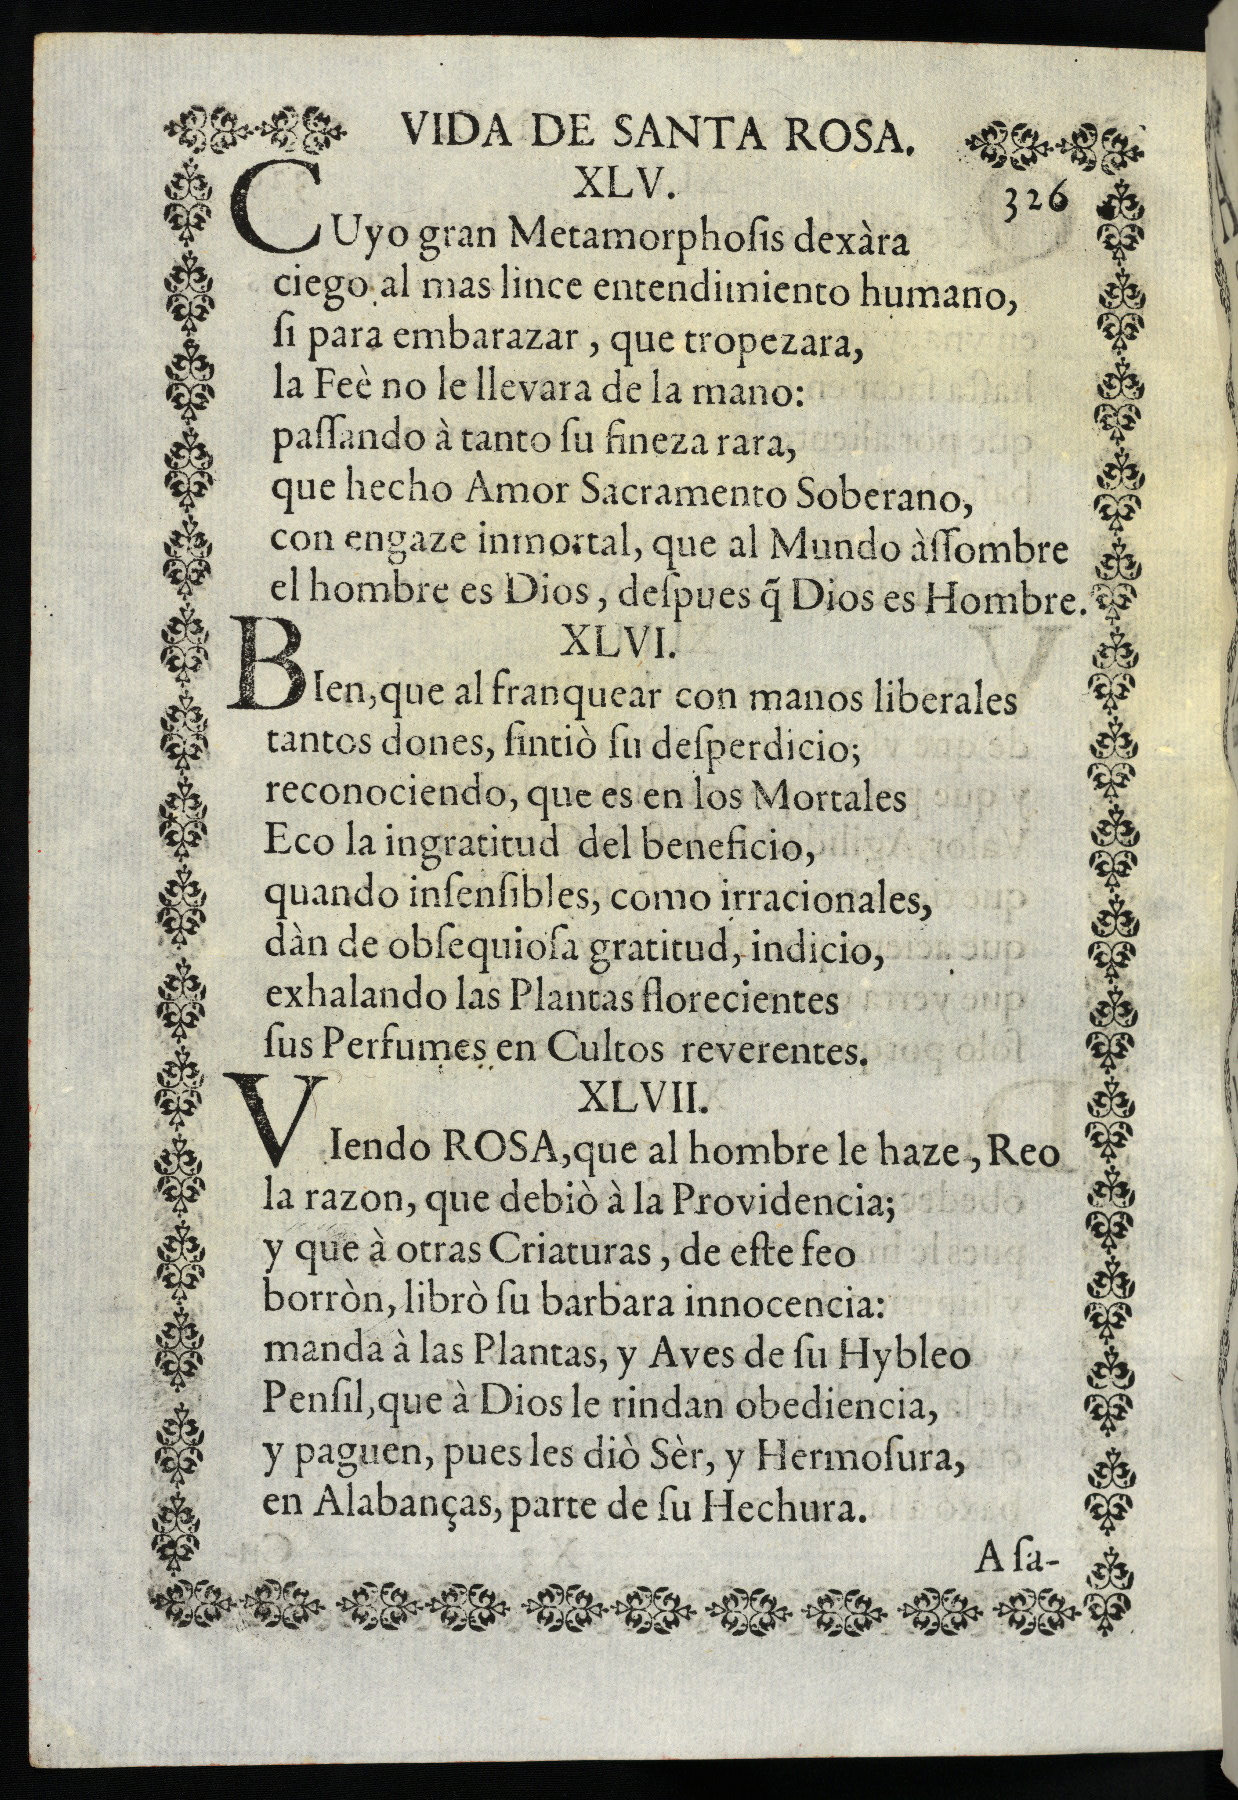 VIDA DE SANTA ROSA.
XLV.
326
CUyo gran Metamorphoſis dexàra
ciego al mas lince entendimiento humano,
ſi para embarazar, que tropezara,
la Feè no le llevara de la mano:
paſſando à tanto ſu fineza rara,
que hecho Amor Sacramento Soberano,
con engaze inmortal, que al Mundo àſſombre
el hombre es Dios, deſpues q̃ Dios es Hombre.
XLVI.
BIen, que al franquear con manos liberales
tantos dones, ſintiò ſu deſperdicio;
reconociendo, que es en los Mortales
Eco la ingratitud del beneficio,
quando inſenſibles, como irracionales,
dàn de obſequioſa gratitud, indicio,
exhalando las Plantas florecientes
ſus Perfumes en Cultos reverentes.
XLVII.
VIendo ROSA, que al hombre le haze, Reo
la razon, que debiò à la Providencia;
y que à otras Criaturas, de eſte feo
borròn, librò ſu barbara innocencia:
manda à las Plantas, y Aves de ſu Hybleo
Penſil, que à Dios le rindan obediencia,
y paguen, pues les diò Sèr, y Hermoſura,
en Alabanças, parte de ſu Hechura.
A ſa-